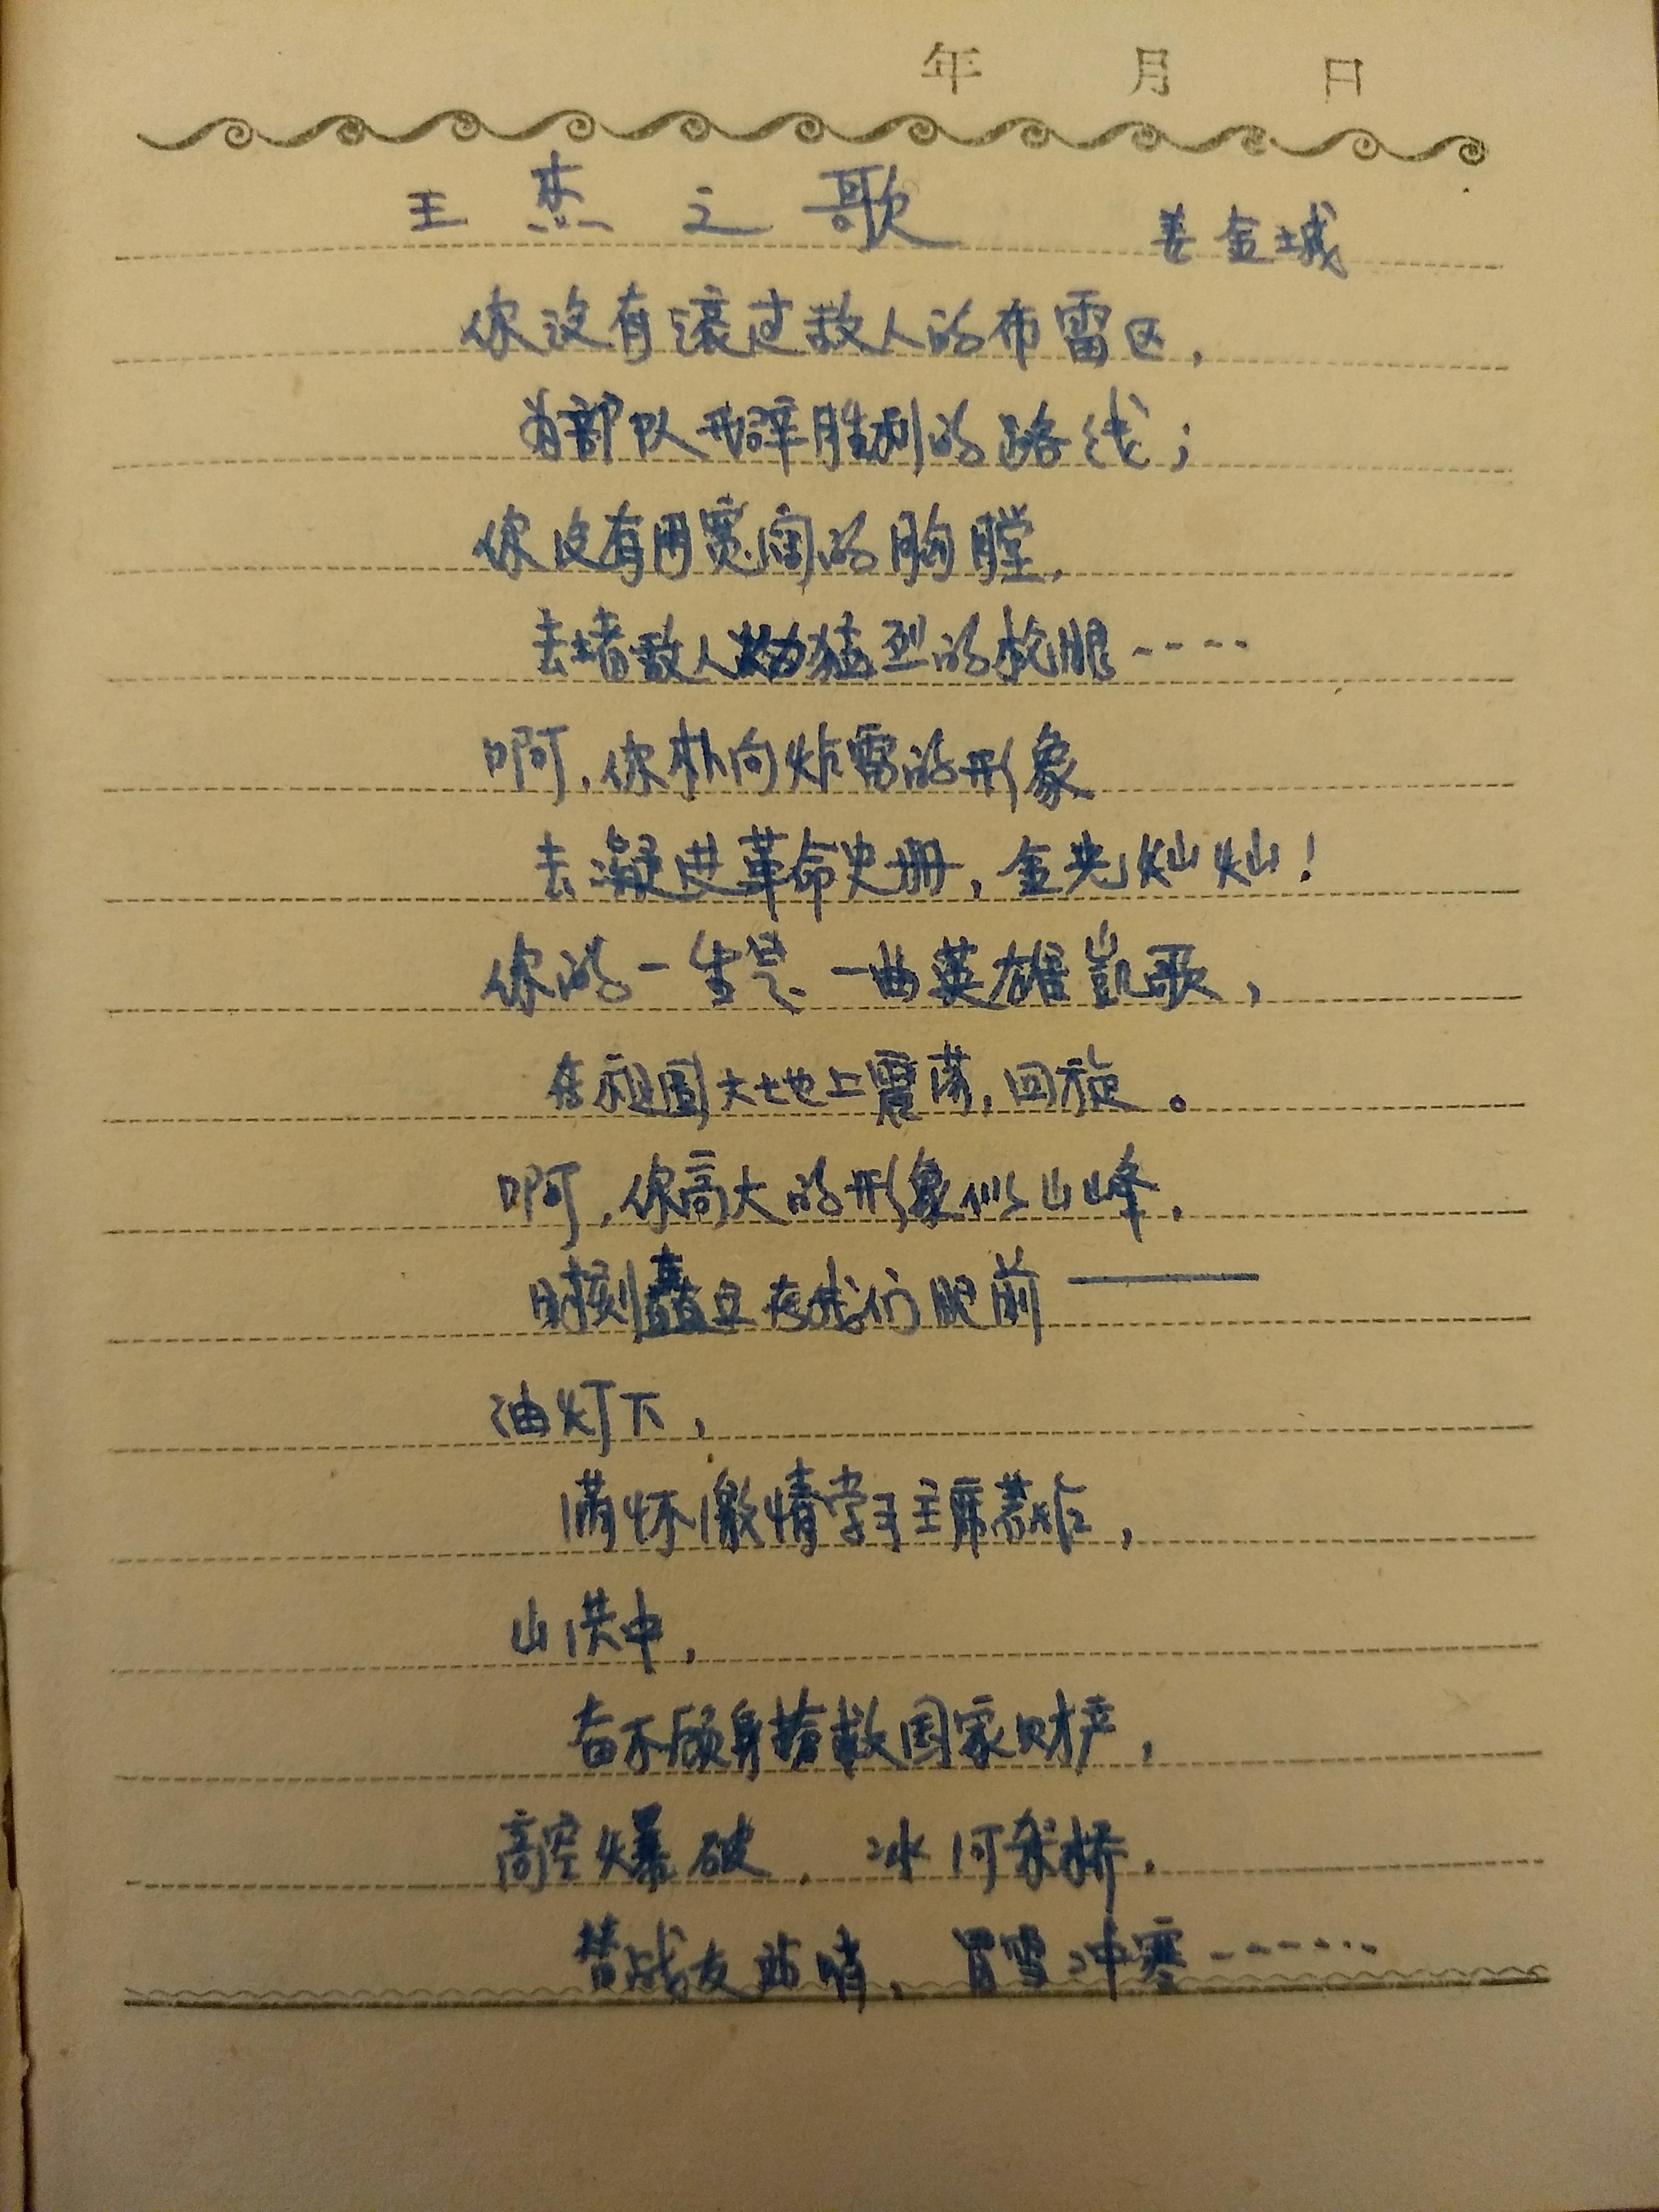 年 月 日
王杰之歌 姜金城
你没有滚过敌人的布雷区,
为部队开辟胜利的路线;
你没有用宽阔的胸膛,
去堵敌人猛烈的枪眼……
啊,你朴向炸雷的形象
去凝进革命史册,金光灿灿!
你的一生是一曲英雄凯歌,
在祖国大地上震荡,回旋。
啊,你高大的形象似山峰,
时刻矗立在我们眼前——
油灯下,
满怀激情学习主席著作,
山洪中,
奋不顾身抢救国家财产,
高空爆破,冰河架桥,
替战友站哨,冒雪冲寒……